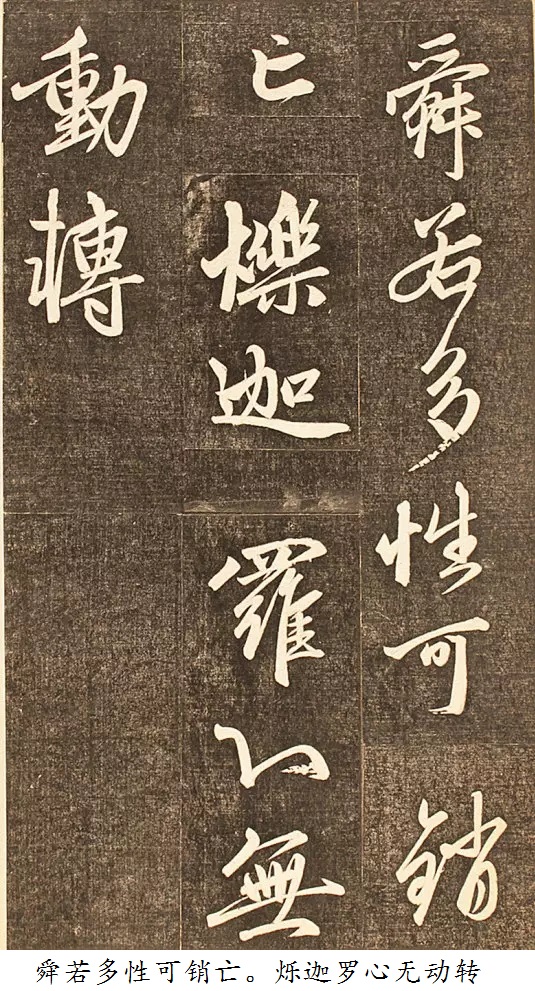 舜若多性可銷
亡爍迦羅心無
動轉
舜若多性可销亡。烁迦罗心无动转